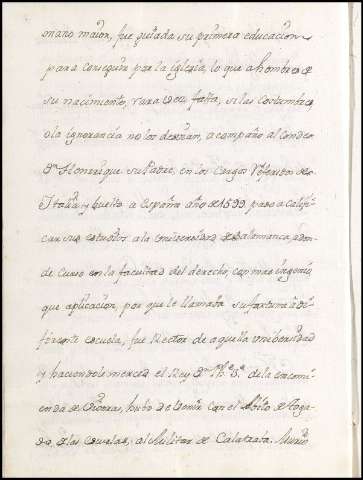 mano maior, fue guiada su primera educacion
para conseguir por la iglesia, lo que a hombres de
su nacimiento, rara vez falta, si las costumbres
o la ignorancia no los desvian, acompaño al conde
Dn Henrrique su Padre, en los cargos referidos de
Italia, y buelto a España año de 1599 paso a califi-
car sus estudios a la Universidad de Salamanca, adon-
de curso en la facultad del derecho, con mas ingenio
que aplicacion, por que le llamaba su fortuna a di-
ferente escuela, fue Rector de aquella Universidad
y haciendole merced el Rey Dn Phe 3º de la encomi-
enda de Vivoras, hubo de benir con el Abito de Toga-
do, de las escuelas, al Militar de Calatraba. Murio